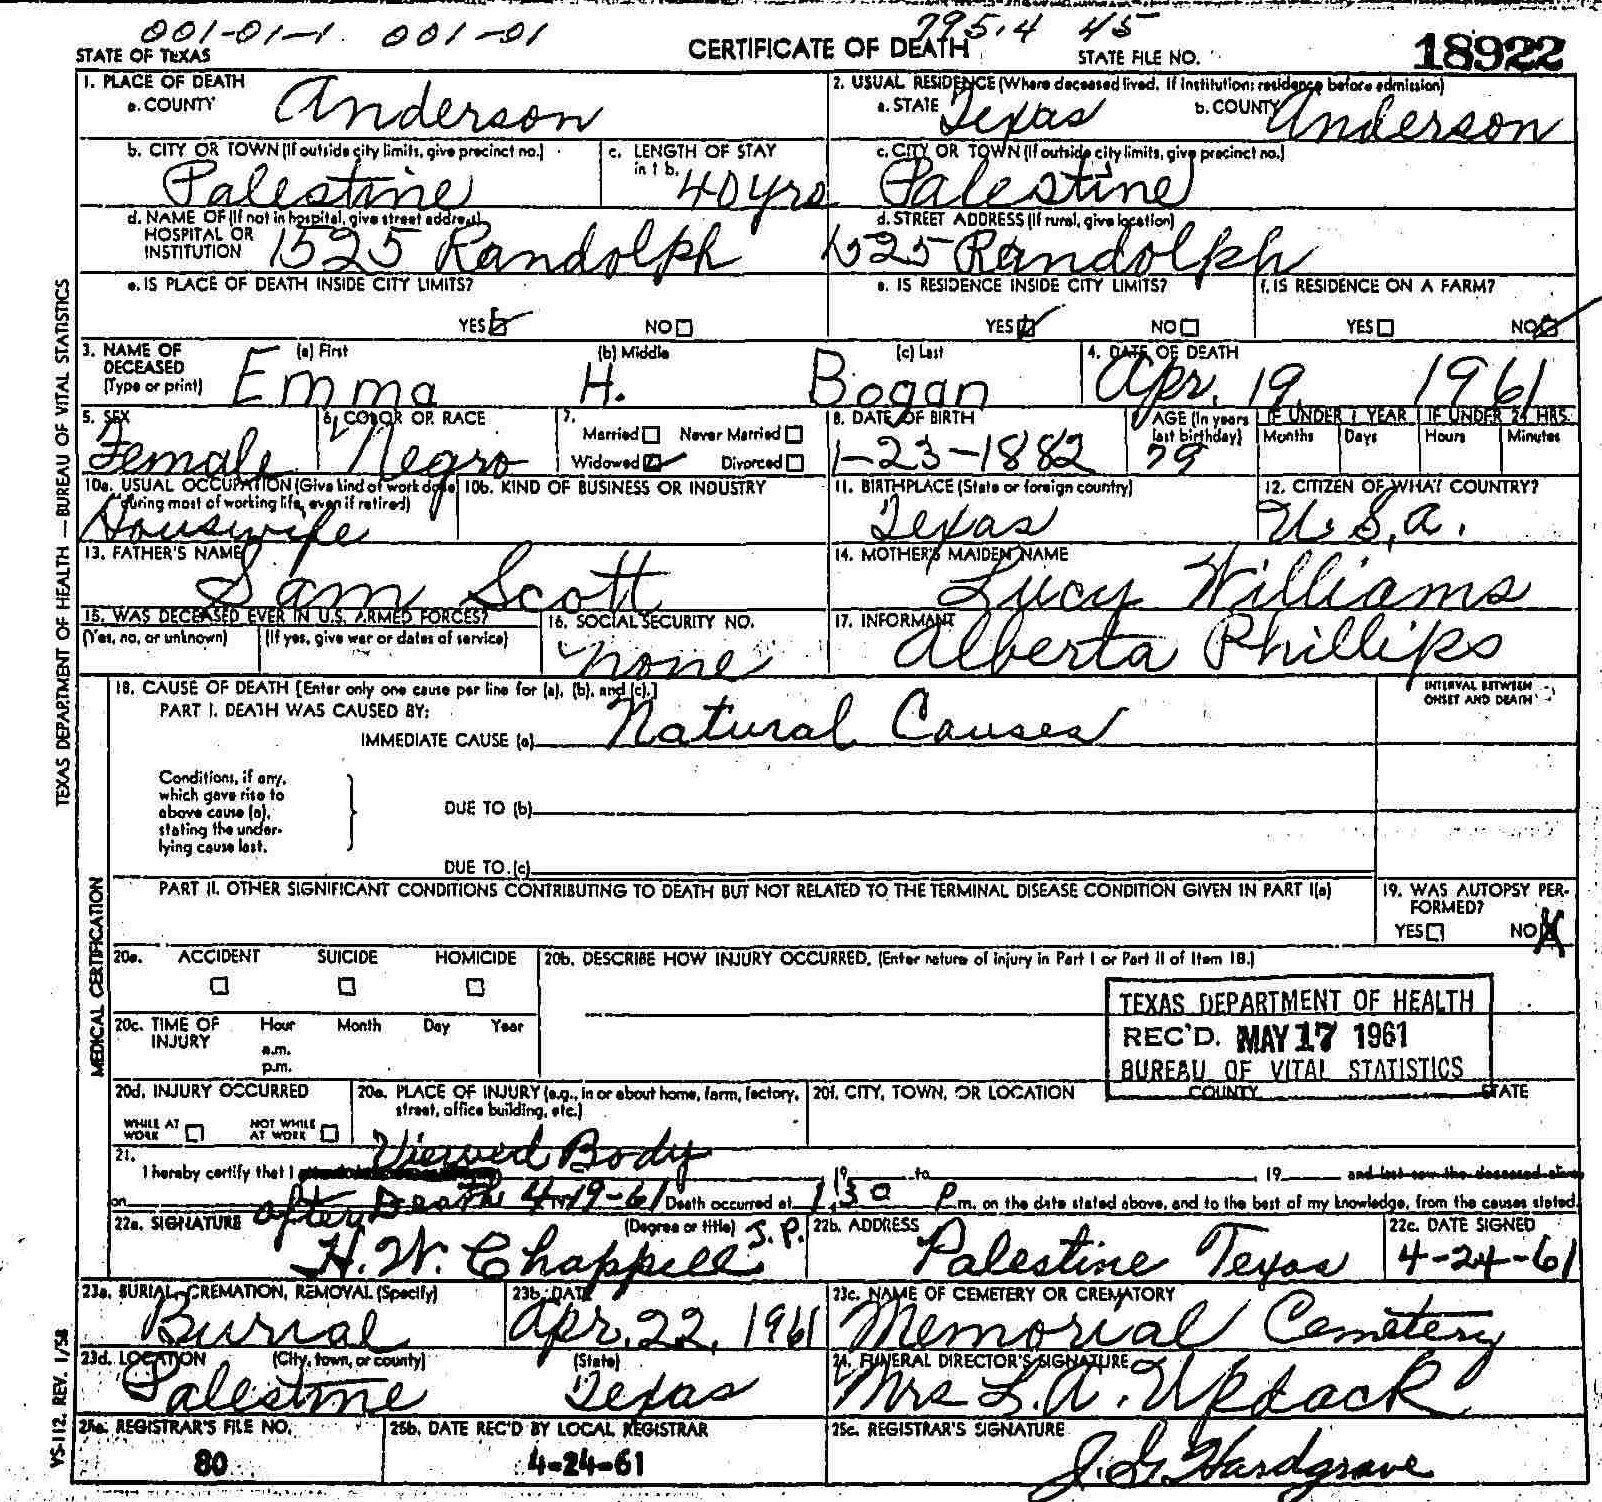 001-01-1 001-01 795.4 45
STATE OF TEXAS CERTIFICATE OF DEATH STATE FILE NO. 18922
1. PLACE OF DEATH
a. COUNTY Anderson
2. USUAL RESIDENCE (Where deceased lived. If institution: residence before admission)
a. STATE Texas b. COUNTY Anderson
b. CITY OR TOWN (If outside city limits, give precinct no.) Palestine
c. LENGTH OF STAY in 1 b. 40 yrs
c. CITY OR TOWN (If outside city limits, give precinct no.) Palestine
d. NAME OF (If not in hospital, give street address) HOSPITAL OR INSTITUTION 1525 Randolph
d. STREET ADDRESS (If rural, give location) 1525 Randolph
e. IS PLACE OF DEATH INSIDE CITY LIMITS? YES NO
e. IS RESIDENCE INSIDE CITY LIMITS? YES NO
f. IS RESIDENCE ON A FARM? YES NO
3. NAME OF DECEASED (Type or print) (a) First Emma (b) Middle H. (c) Last Bogan
4. DATE OF DEATH Apr. 19, 1961
5. SEX Female
6. COLOR OR RACE Negro
7. Married Never Married
Widowed Divorced
8. DATE OF BIRTH 1-23-1882
9. AGE (In years last birthday) 79
IF UNDER 1 YEAR Months Days
IF UNDER 24 HRS. Hours Minutes
10a. USUAL OCCUPATION (Give kind of work done during most of working life, even if retired) Houswife
10b. KIND OF BUSINESS OR INDUSTRY
11. BIRTHPLACE (State or foreign country) Texas
12. CITIZEN OF WHAT COUNTRY? U.S.A.
13. FATHER'S NAME Sam Scott
14. MOTHER'S MAIDEN NAME Lucy Williams
15. WAS DECEASED EVER IN U.S. ARMED FORCES?
(Yes, no, or unknown) (If yes, give war or dates of service)
16. SOCIAL SECURITY NO. none
17. INFORMANT Alberta Phillips
18. CAUSE OF DEATH [Enter only one cause per line for (a), (b), and (c).]
PART I. DEATH WAS CAUSED BY:
IMMEDIATE CAUSE (a) Natural Causes
INTERVAL BETWEEN ONSET AND DEATH
Conditions, if any, which gave rise to above cause (a), stating the underlying cause last.
DUE TO (b)
DUE TO (c)
PART II. OTHER SIGNIFICANT CONDITIONS CONTRIBUTING TO DEATH BUT NOT RELATED TO THE TERMINAL DISEASE CONDITION GIVEN IN PART I(a)
19. WAS AUTOPSY PERFORMED? YES NO X
20a. ACCIDENT SUICIDE HOMICIDE
20b. DESCRIBE HOW INJURY OCCURRED. (Enter nature of injury in Part I or Part II of Item 18.)
TEXAS DEPARTMENT OF HEALTH
REC'D. MAY 17 1961
BUREAU OF VITAL STATISTICS
20c. TIME OF INJURY Hour Month Day Year
a.m.
p.m.
20d. INJURY OCCURRED
WHILE AT WORK NOT WHILE AT WORK
20e. PLACE OF INJURY (e.g., in or about home, farm, factory, street, office building, etc.)
20f. CITY, TOWN, OR LOCATION COUNTY STATE
21. Viewed Body
I hereby certify that I 19 to , 19 and last saw the deceased alive
on after Death 4-19-61 Death occurred at 1:30 P.m. on the date stated above, and to the best of my knowledge, from the causes stated.
22a. SIGNATURE H. W. Chappell (Degree or title) J.P.
22b. ADDRESS Palestine Texas
22c. DATE SIGNED 4-24-61
23a. BURIAL, CREMATION, REMOVAL (Specify) Burial
23b. DATE Apr. 22, 1961
23c. NAME OF CEMETERY OR CREMATORY Memorial Cemetery
23d. LOCATION (City, town, or county) (State) Palestine Texas
24. FUNERAL DIRECTOR'S SIGNATURE Mrs L. A. Updack
25a. REGISTRAR'S FILE NO. 80
25b. DATE REC'D BY LOCAL REGISTRAR 4-24-61
25c. REGISTRAR'S SIGNATURE J. G. Hardgrave
TEXAS DEPARTMENT OF HEALTH — BUREAU OF VITAL STATISTICS
MEDICAL CERTIFICATION
VS-112. REV. 1/58